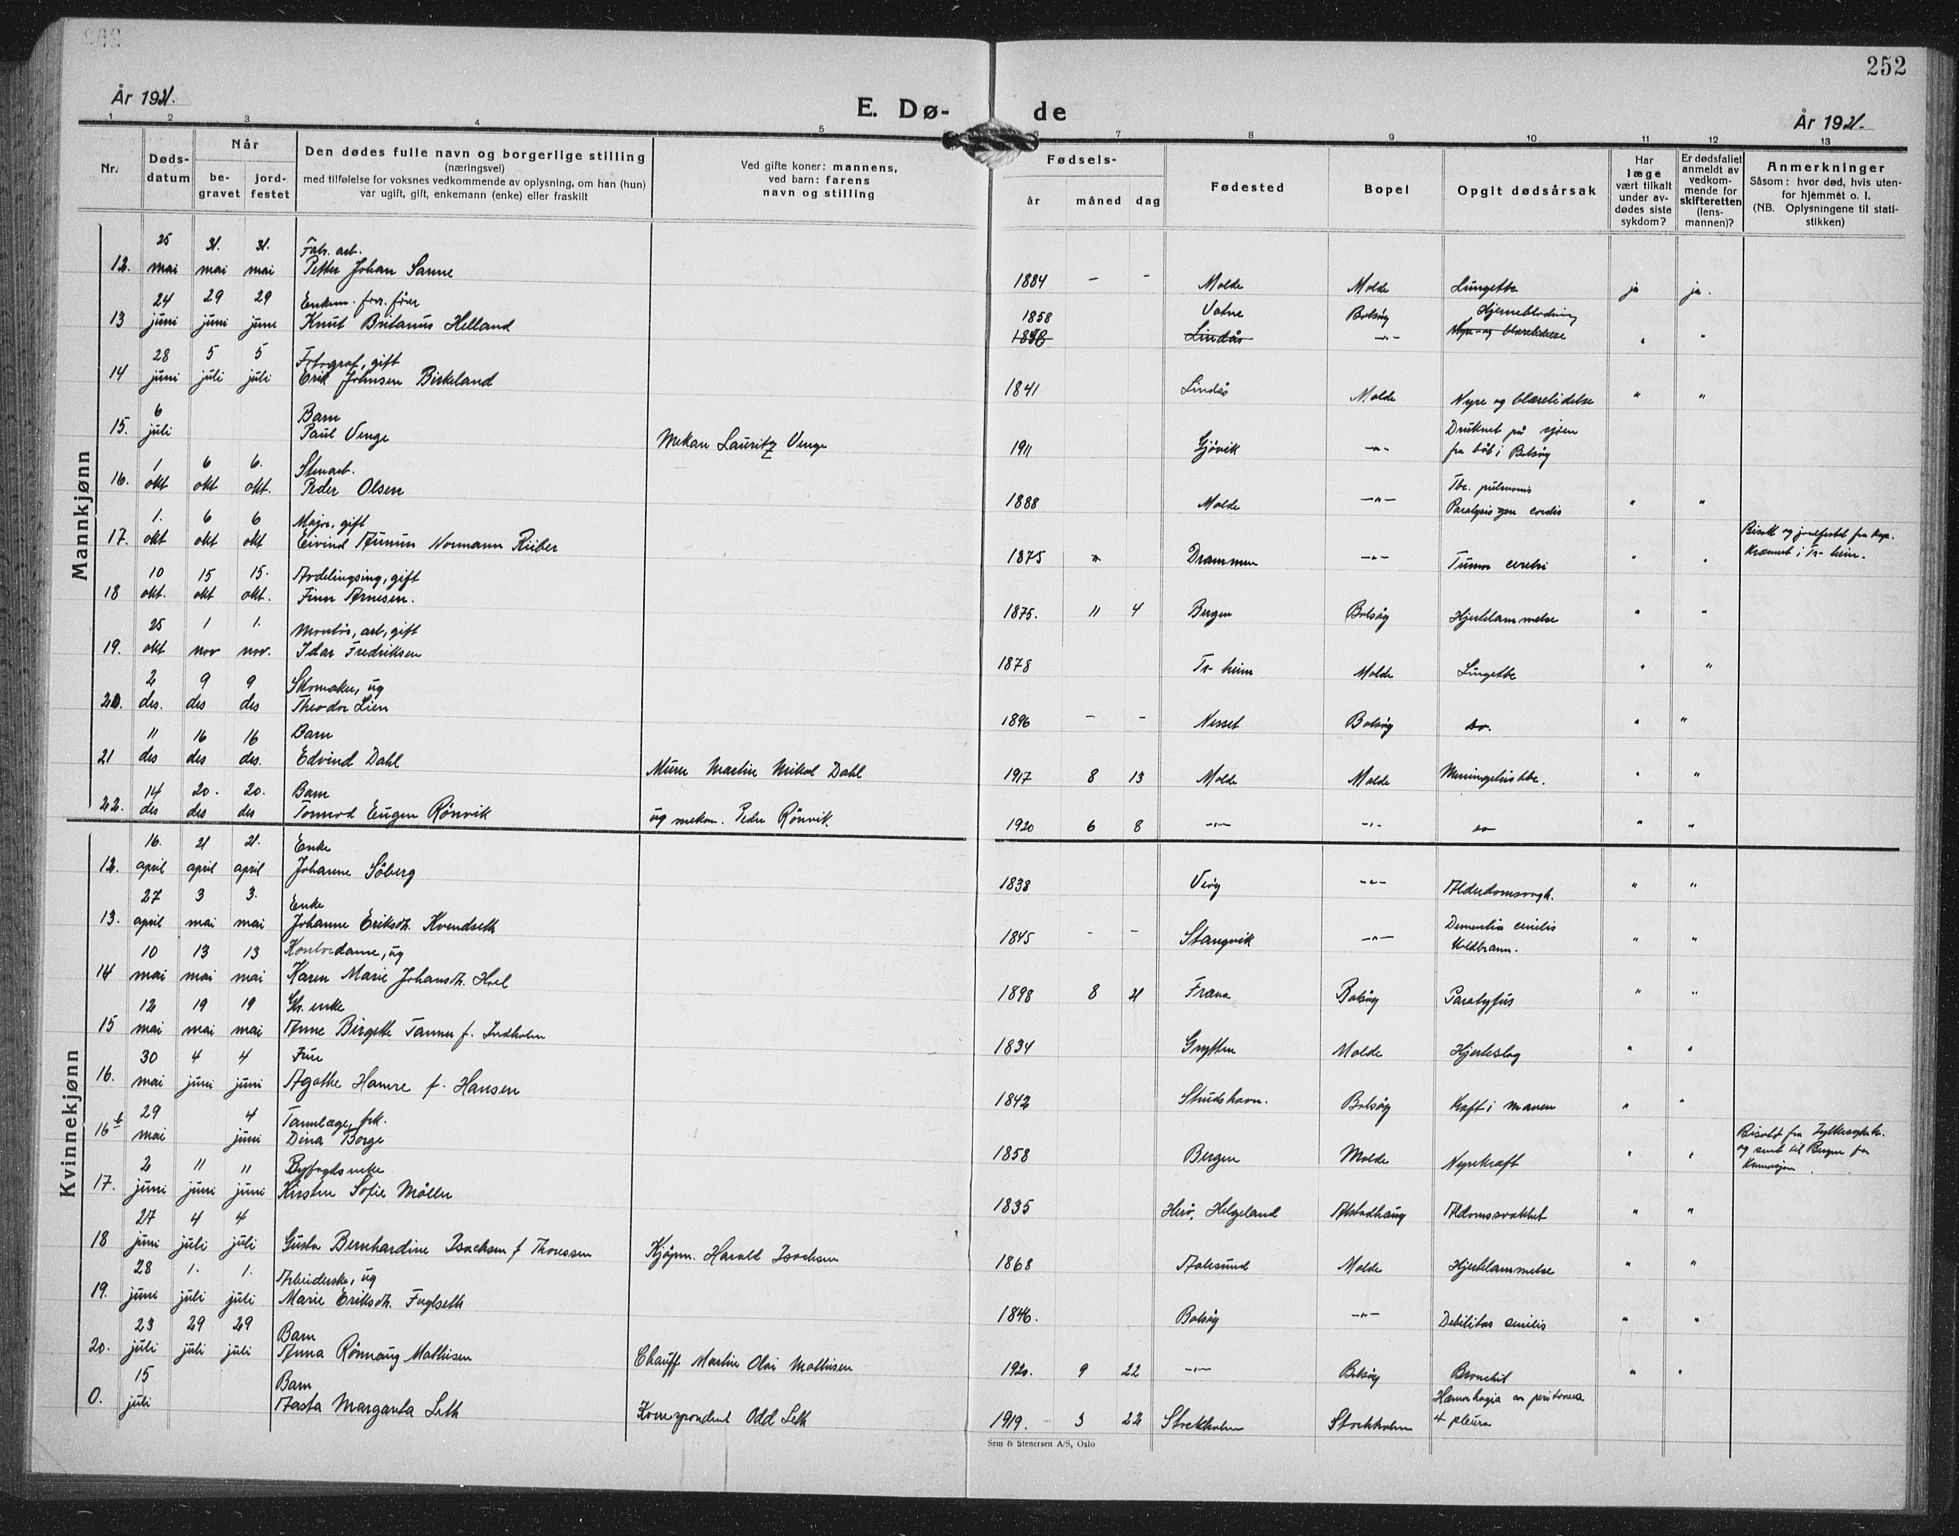 252
År 1921.
E. Dø-
de
År 1921.
1 2 3 4 5 6 7 8 9 10 11 12 13
Nr.
Døds-
datum
Når
be-
gravet
jord-
festet
Den dødes fulle navn og borgerlige stilling
(næringsvei)
med tilføielse for voksnes vedkommende av oplysning, om han (hun)
var ugift, gift, enkemann (enke) eller fraskilt
Ved gifte koner: mannens,
ved barn: farens
navn og stilling
Fødsels-
år måned dag
Fødested
Bopel
Opgit dødsårsak
Har
læge
vært tilkalt
under av-
dødes siste
sykdom?
Er dødsfallet
anmeldt av
vedkom-
mende for
skifteretten
(lens-
mannen)?
Anmerkninger
Såsom: hvor død, hvis uten-
for hjemmet o. l.
(NB. Oplysningene til stati-
stikken)
Mannkjønn
25 31. 31. Fabr. arb.
12. mai mai mai Petter Johan Sanne 1884 - - Molde Molde Lungetbc ja ja.
24 29 29 Enkem. forr. fører
13 juni juni june Knut Britanus Helland 1858 Vatne Bolsøy Hjerneblødning
1848 Lindås -"- Nyre og blærelidelse " "
28 5 5 Fotograf, gift
14 juni juli juli Erik Johnsen Birkeland 1841 Lindås Molde Nyre og blærelidelse " "
6 Barn
15. juli Paul Venge Mekan Lauritz Venge 1911 Gjøvik -"- Druknet på sjøen
fra båt i Bolsøy
1 6 6. Stenarb.
16. okt okt okt. Peder Olsen 1888 Molde -"- Tbc. pulmonis
Paralysis gen cordis " "
1. 6 6 Major, gift
17. okt okt okt Eivind Normann Riiber 1875 Drammen -"- Tumor cerebri " "
Bisatt og jordfestet fra kap.
Kremert i Tr-heim.
10 15 15. Avdelingsing, gift
18 okt. okt okt. Finn Arnesen. 1875. 11 4 Bergen Bolsøy Hjertelammelse " "
25 1 1. Montør, arb, gift
19. okt nov nov. Idar Fredriksen 1878 Tr-heim Molde Lungetbc " "
2 9 9 Skomaker, ug
20. des. des des Theodor Lien 1896 - - Nesset Bolsøy do. " "
11 16 16 Barn
21 des des des. Edvind Dahl Murer Martin Mikal Dahl 1917 8 13 Molde Molde Meningetistbc. " "
14 20. 20. Barn
22. des des des Tormod Eugen Rønvik ug mekan. Peder Rønvik 1920 6 8 -"- -"- do " "
Kvinnekjønn
16. 21 21. Enke
12. april april april Johanne Søberg 1838 Veøy -"- Alderdomssvagh. " "
27 3 3. Enke
13. april mai mai Johanne Eriksdtr. Kvendseth 1845 - - Stangvik -"- Dementia cenilis
Koldbrann. " "
10 13 13 Kontordame, ug
14 mai mai mai Karen Marie Johansdtr. Hoel 1898 8 21 Fræna Bolsøy Paratyfus " "
12 19 19 Gb. enke
15 mai mai mai Anne Birgette Tanner f. Indholm 1834 Grytten Molde Hjerteslag " "
30 4 4 Frue
16. mai juni juni Agathe Hamre f. Hansen 1842 Studshavn. Bolsøy Kræft i maven " "
29 4 Tannlæge, frk.
16b mai juni Dina Borge 1858 Bergen Molde Nyrekræft " "
Bisatt fra Fylkessykeh.
og sent til Bergen for
Kremasjon
2 11 11 Byfogdsenke
17. juni juni juni Kirsten Sofie Møller 1835 Herø, Helgeland Alstadhaug Aldomssvakhet " "
27 4 4
18 juni juli juli Gusta Bernhardine Isachsen f Thoressen Kjøpm. Harald Isachsen 1868 Aalesund Molde Hjertelammelse " "
28 1. 1. Arbeiderske, ug
19. juni juli juli Marie Eriksdtr. Fuglseth 1846. Bolsøy -"- Debilitas senilis " "
23 29 29 Barn
20. juli juli juli Anna Rønnaug Mathisen Chauff Martin Olai Mathisen 1920. 9 22 -"- Bolsøy Bronchit " "
15 Barn
0. juli Aasta Margareta Leth Korrespondent Odd Leth 1919. 3 22 Stockholm Stockholm Hæmorhagia
+ pleura
Sem & Stenersen A/S, Oslo